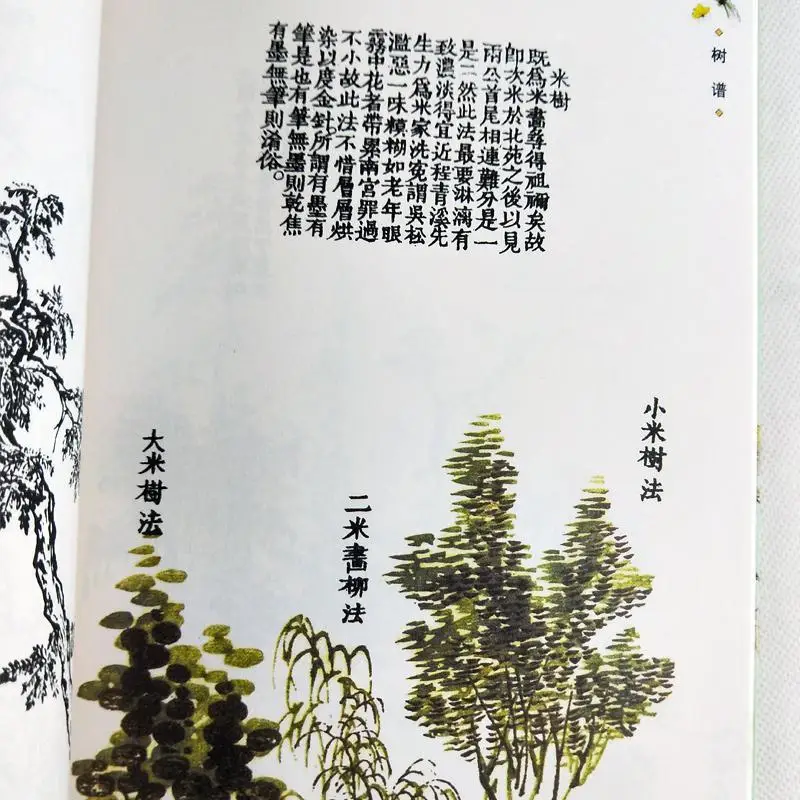 树谱
米樹
既爲米畫尋得祖禰矣故
卽次米於北苑之後以見
兩公首尾相連難分是一
是二然此法最要淋漓有
致濃淡得宜近程青溪先
生力爲米家洗寃謂吳松
濫惡一味糢糊如老年眼
霧中花者帶累南宮罪過
不小故此法不惜層層烘
染以度金針所謂有墨有
筆是也有筆無墨則乾焦
有墨無筆則淆俗。
小米樹法
二米畫柳法
大米樹法